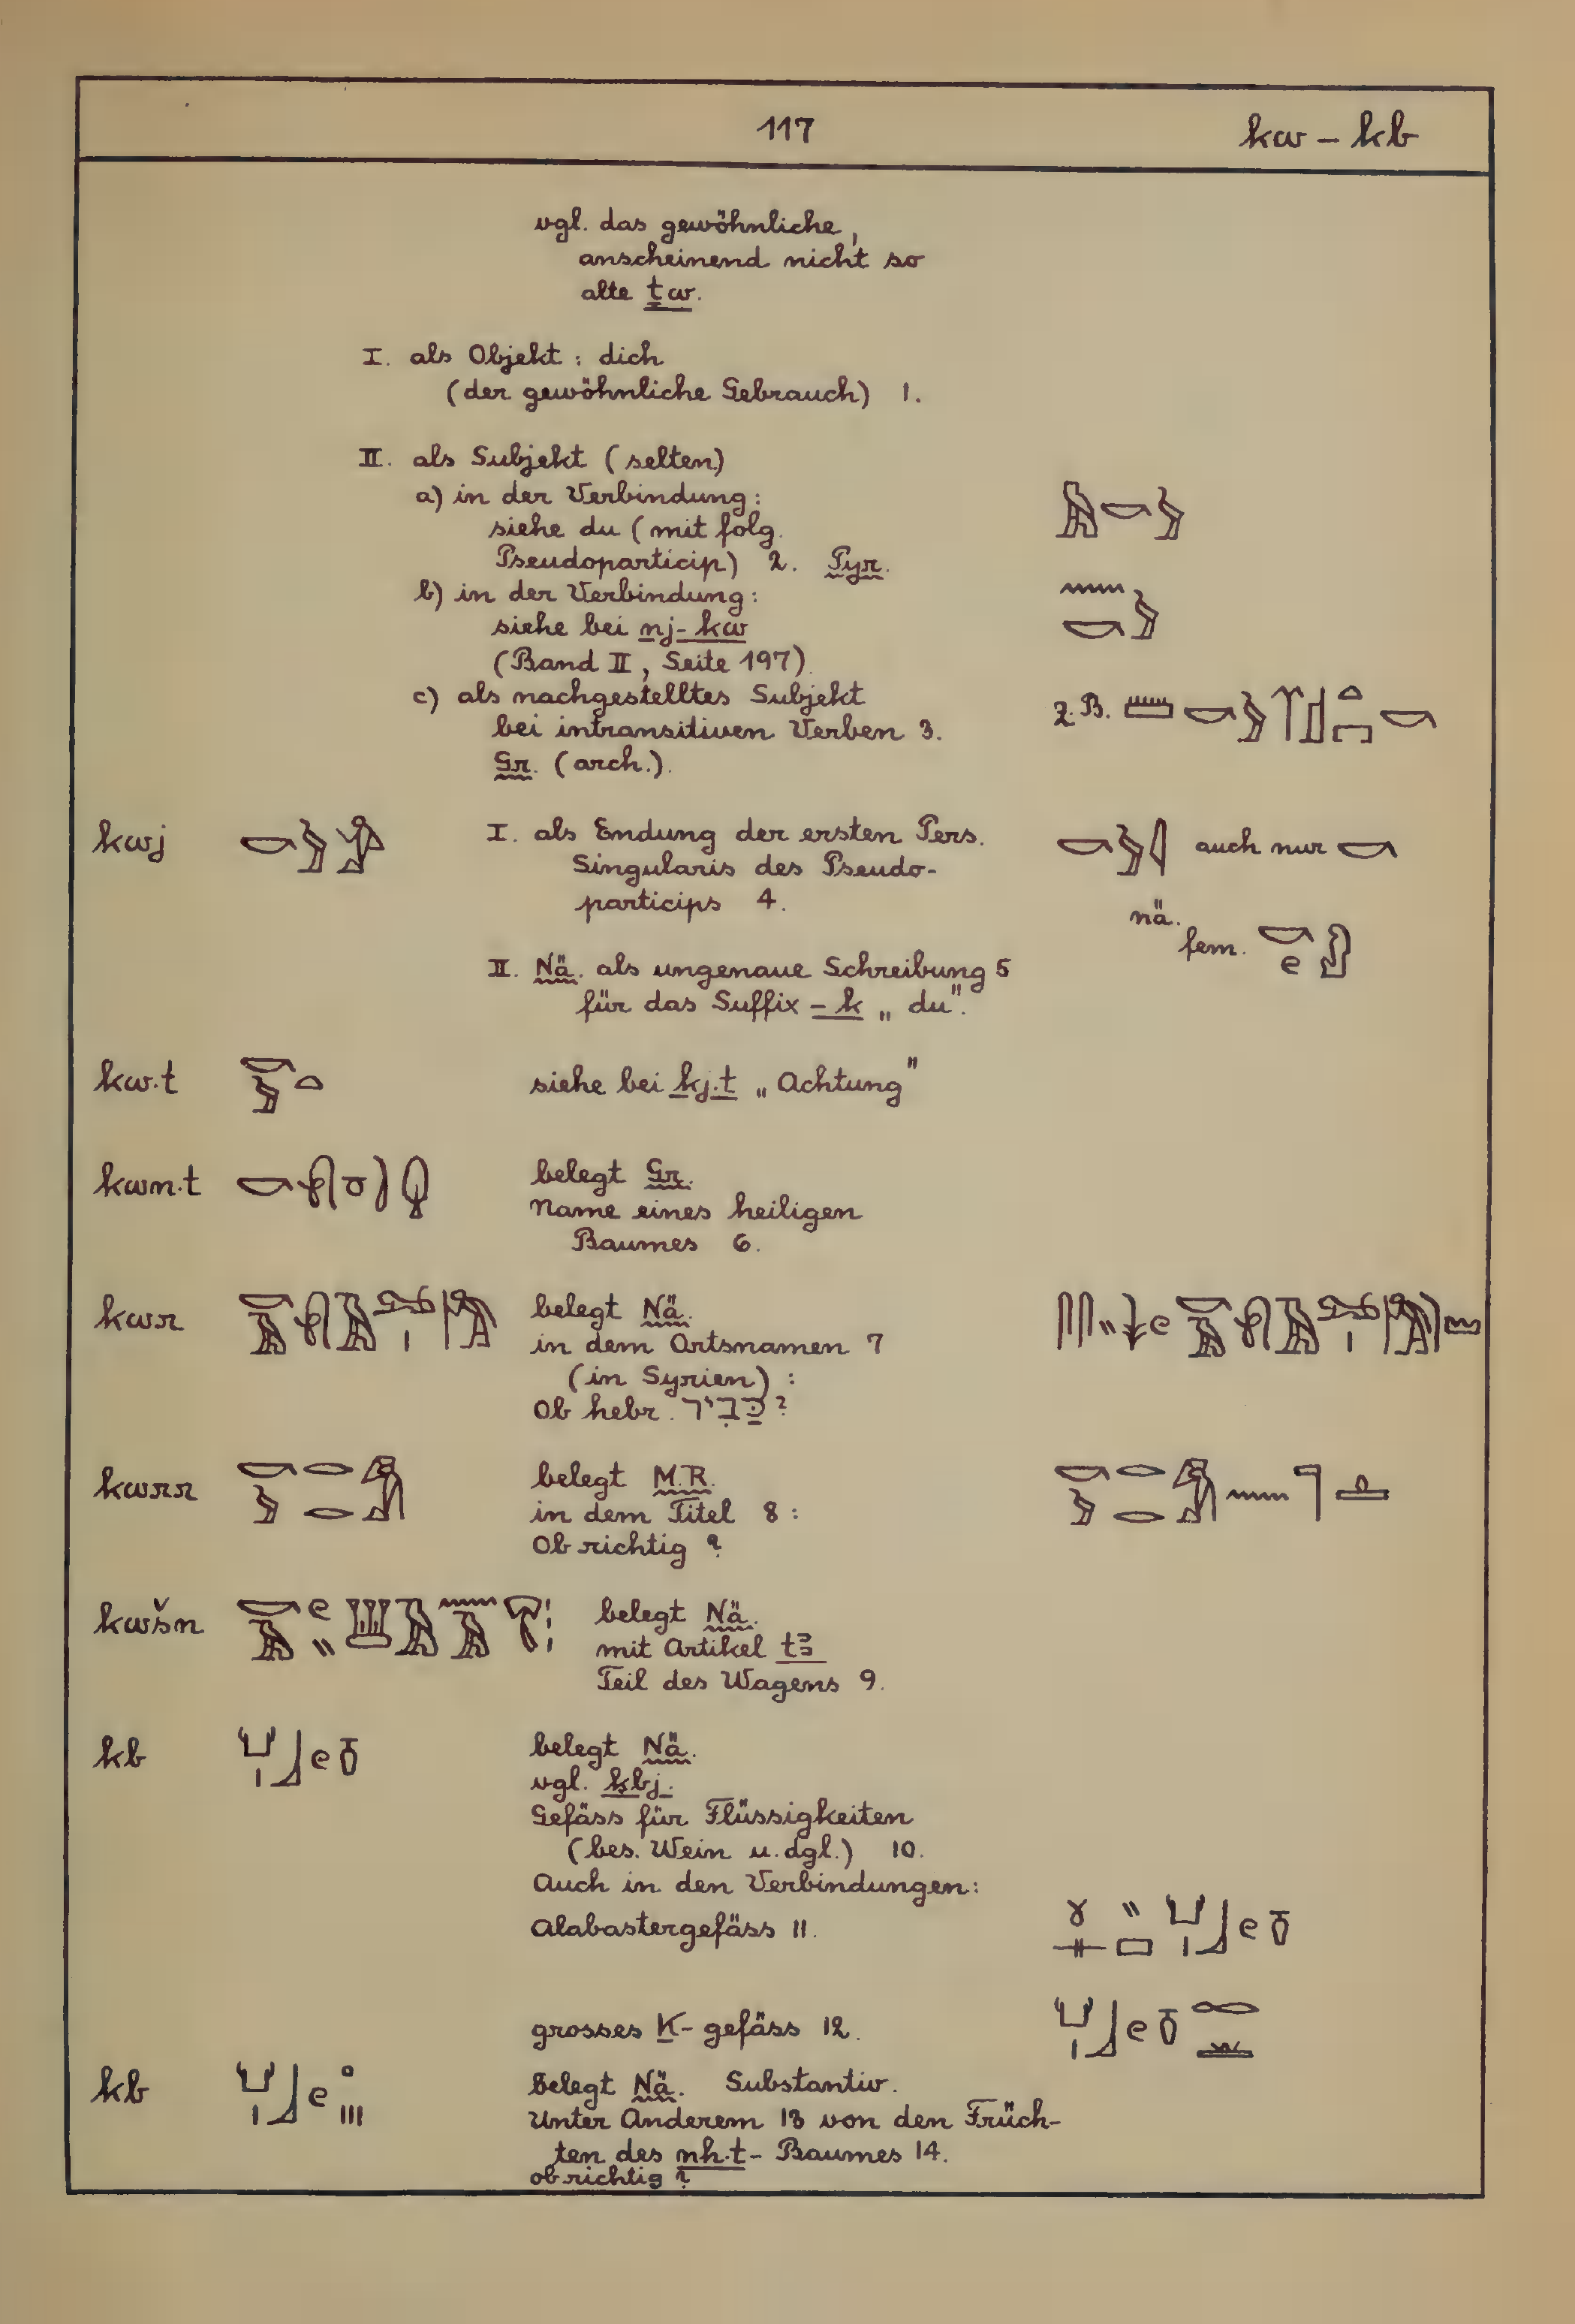 117
kw – kb
vgl. das gewöhnliche,
anscheinend nicht so
alte ṯw.
I. als Objekt: dich
(der gewöhnliche Gebrauch) 1.
II. als Subjekt (selten)
a) in der Verbindung:
siehe du (mit folg.
Pseudoparticip) 2. Pyr.
b) in der Verbindung:
siehe bei nj-kw
(Band II, Seite 197).
c) als nachgestelltes Subjekt z.B.
bei intransitiven Verben 3.
Gr. (arch.).
kwj I. als Endung der ersten Pers. auch nur
Singularis des Pseudo-
particips 4.
nä. fem.
II. Nä. als ungenaue Schreibung 5
für das Suffix -k „du".
kw.t siehe bei kj.t „Achtung"
kwn.t belegt Gr.
Name eines heiligen
Baumes 6.
kwr belegt Nä.
in dem Ortsnamen 7
(in Syrien):
Ob hebr. ?
kwrr belegt M.R.
in dem Titel 8:
Ob richtig?
kwšn belegt Nä.
mit Artikel tꜣ
Teil des Wagens 9.
kb belegt Nä.
vgl. ḳbj.
Gefäss für Flüssigkeiten
(bes. Wein u. dgl.) 10.
Auch in den Verbindungen:
Alabastergefäss 11.
grosses K-gefäss 12.
kb belegt Nä. Substantiv.
Unter Anderem 13 von den Früch-
ten des nh.t-Baumes 14.
ob richtig?